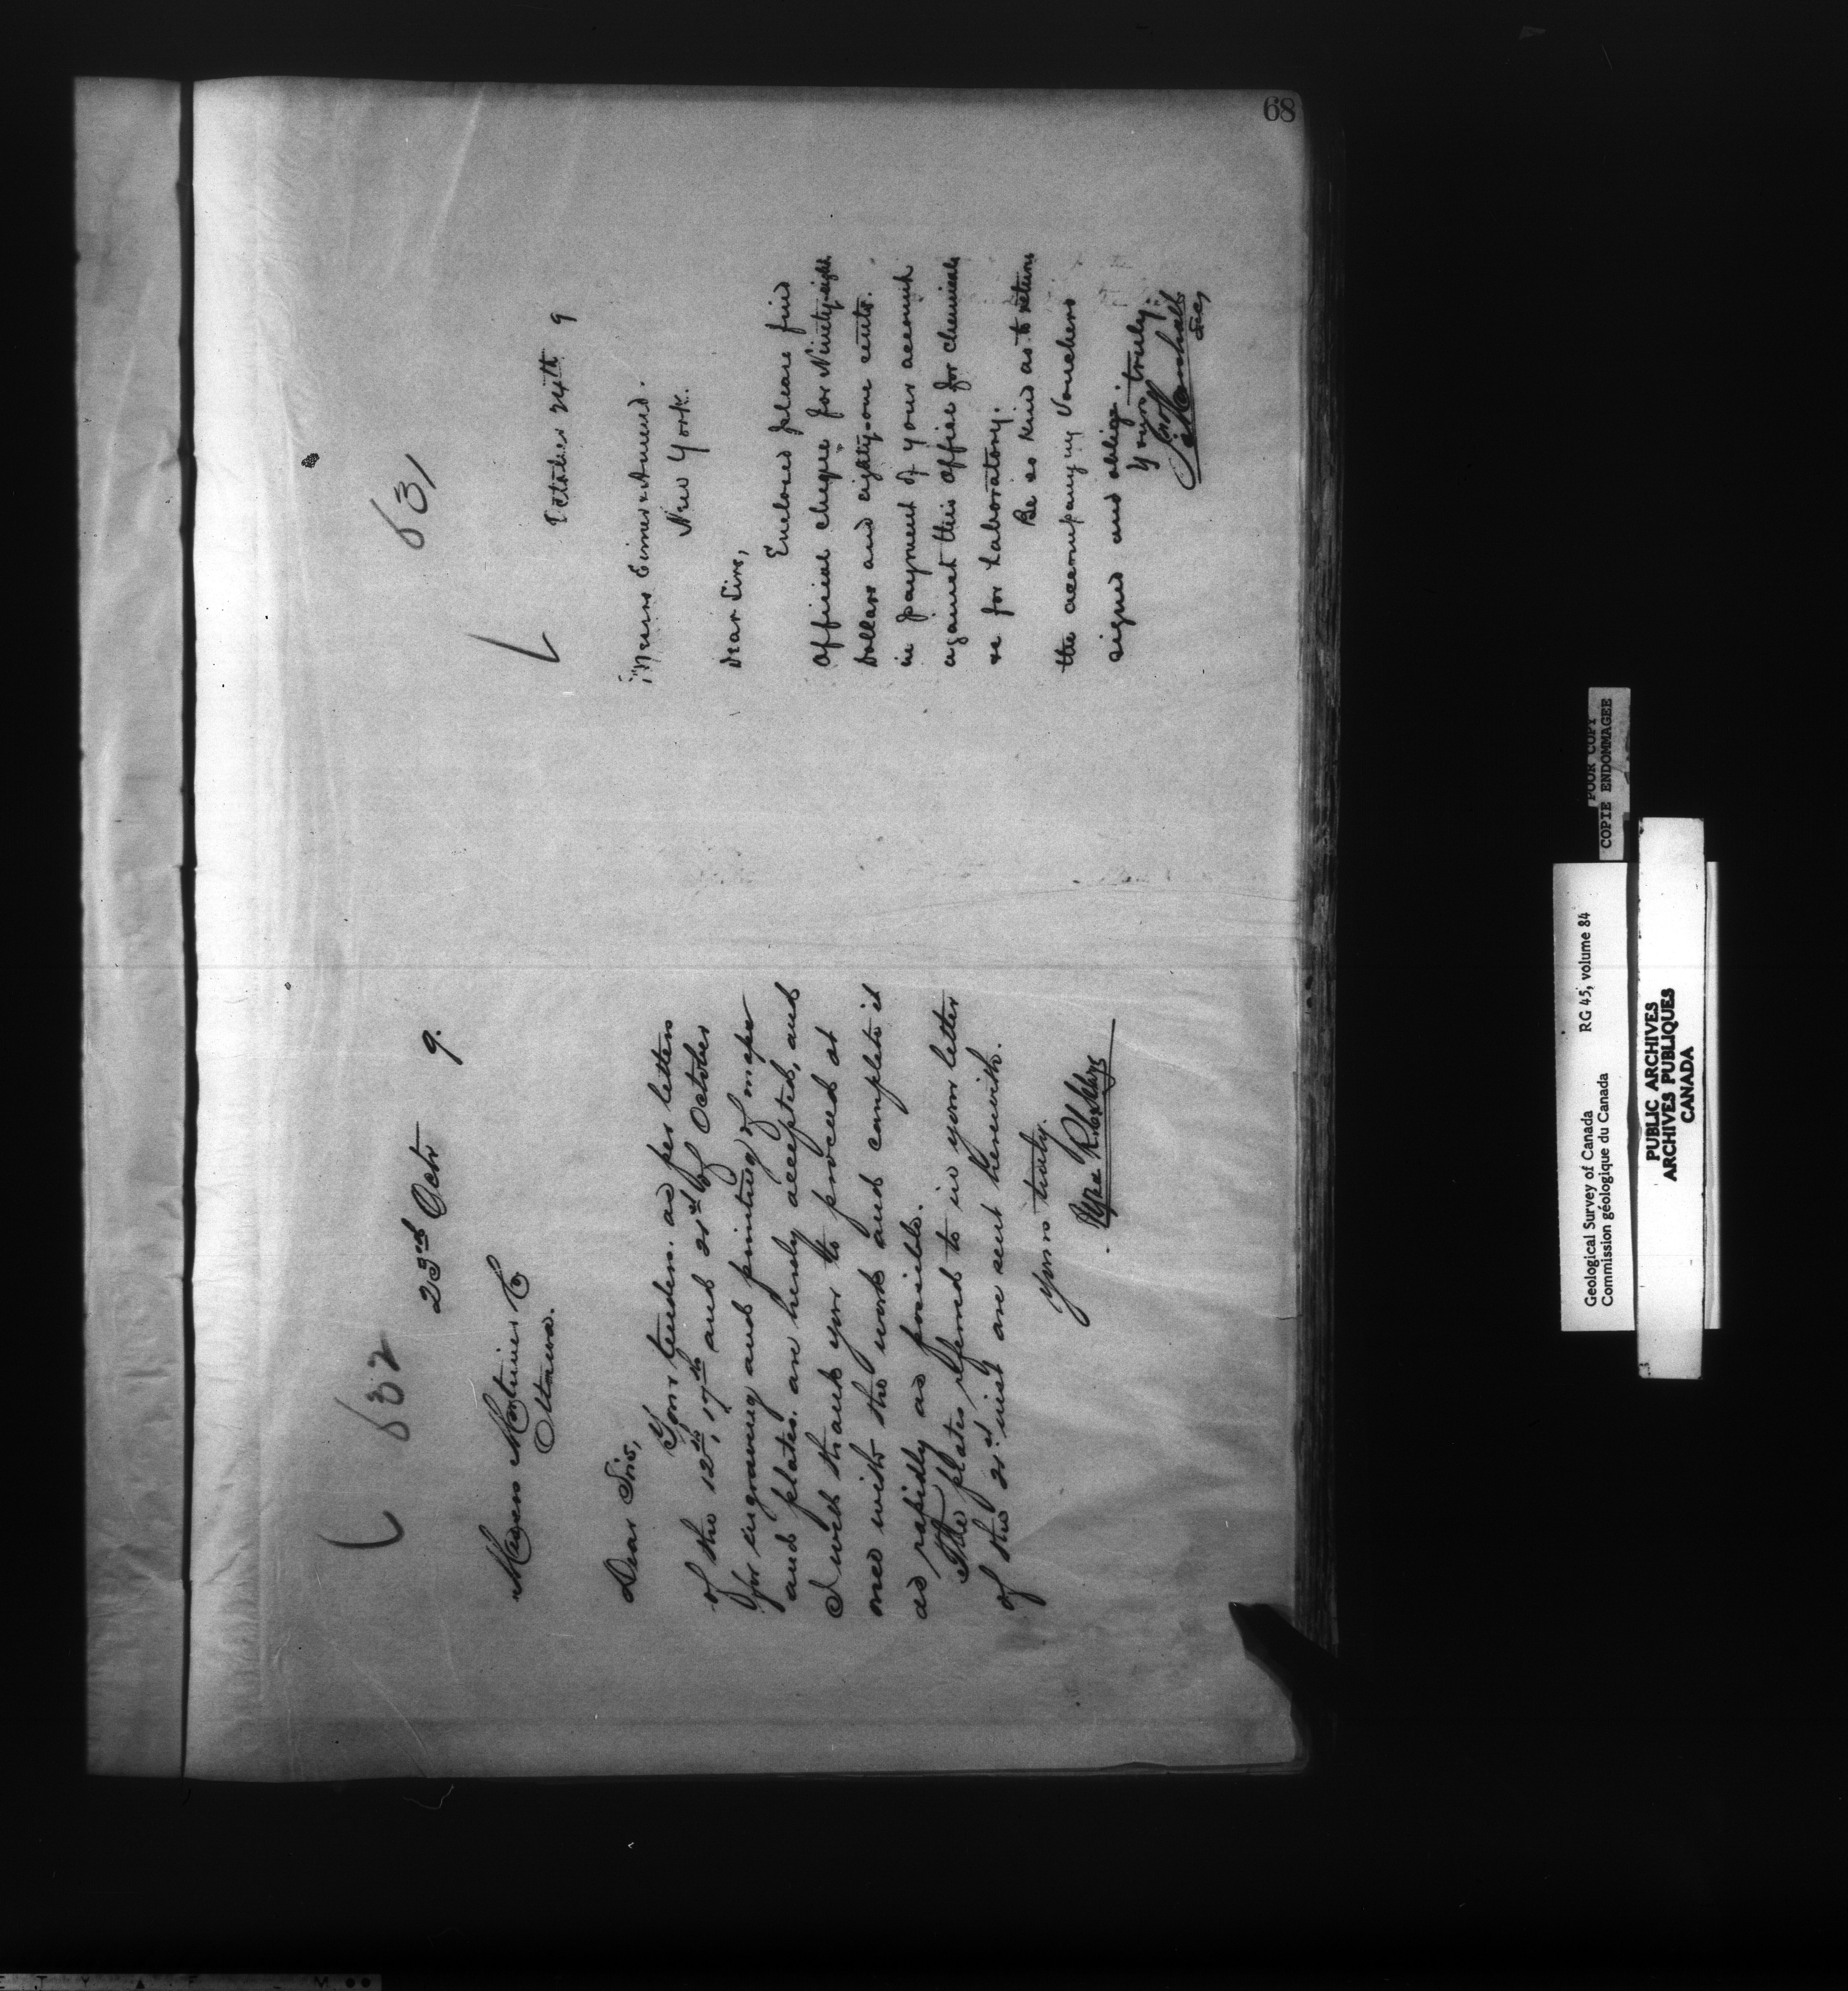 68
632
23rd Octr 9.
Messrs Mortimer & Co
Ottawa.
Dear Sirs,
Your tenders. as per letters
of the 12th, 17th and 21st of October
for engraving and printing of maps
and plates. are hereby accepted, and
I will thank you to proceed at
once with the work and complete it
as rapidly as possible.
The plates referred to in your letter
of the 21st inst are sent herewith.
Yours truly.
631
October 24th 9
Messrs Eimer & Amend.
New York.
Dear Sirs,
Enclosed please find
official cheque for Ninety-eight
Dollars and eighty-one cents.
in payment of your account
against this office for chemicals
&c for Laboratory.
Be so kind as to return
the accompanying Vouchers
signed and oblige.
Yours truly.
Jno Marshall
Secy
POOR COPY
COPIE ENDOMMAGEE
Geological Survey of Canada RG 45, volume 84
Commission géologique du Canada
PUBLIC ARCHIVES
ARCHIVES PUBLIQUES
CANADA